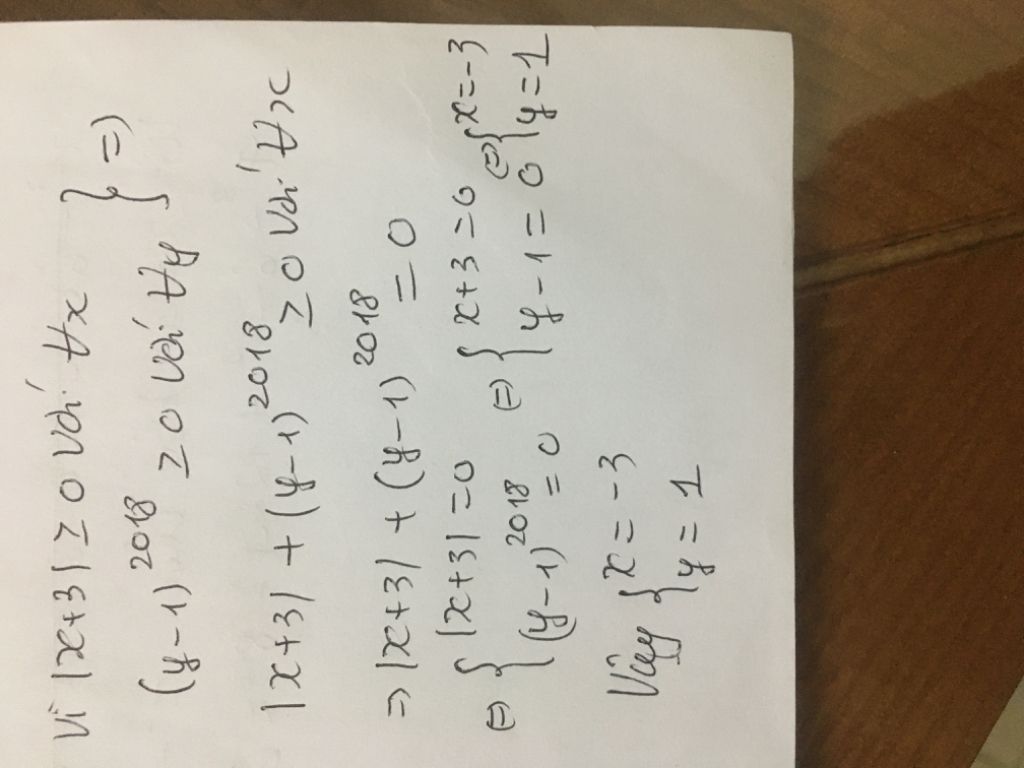 Vì |x+3| ≥ 0 với ∀x } =)
(y-1)^2018 ≥ 0 với ∀y
|x+3| + (y-1)^2018 ≥ 0 với ∀x
=> |x+3| + (y-1)^2018 = 0
(=) { |x+3| = 0 (=) { x+3 = 0 (=) { x = -3
(y-1)^2018 = 0 y - 1 = 0 y = 1
Vậy { x = -3
y = 1